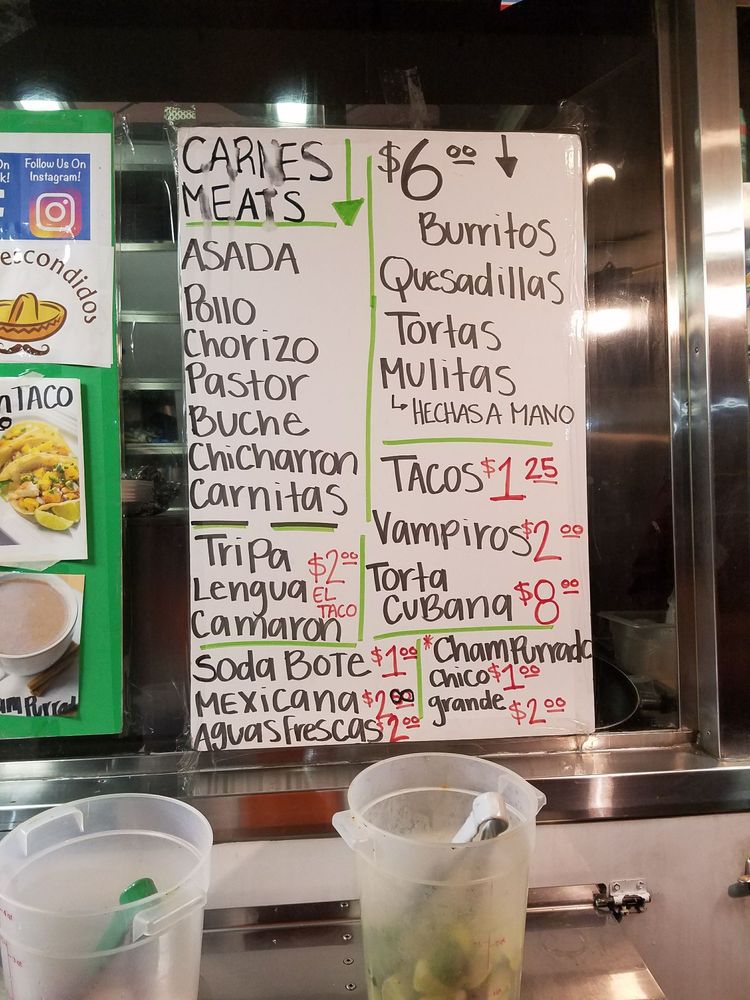 On
k!
Follow Us On
Instagram!
escondidos
TACO
CARNES
MEATS
ASADA
Pollo
Chorizo
Pastor
Buche
Chicharron
Carnitas
Tripa
Lengua
Camaron
$2.00
EL
TACO
$6.00
Burritos
Quesadillas
Tortas
Mulitas
HECHAS A MANO
TACOS $1.25
Vampiros $2.00
Torta
Cubana $8.00
Soda Bote $1.00
Mexicana $2.00
Aguas Frescas $2.00
*Champurrado
chico $1.00
grande $2.00